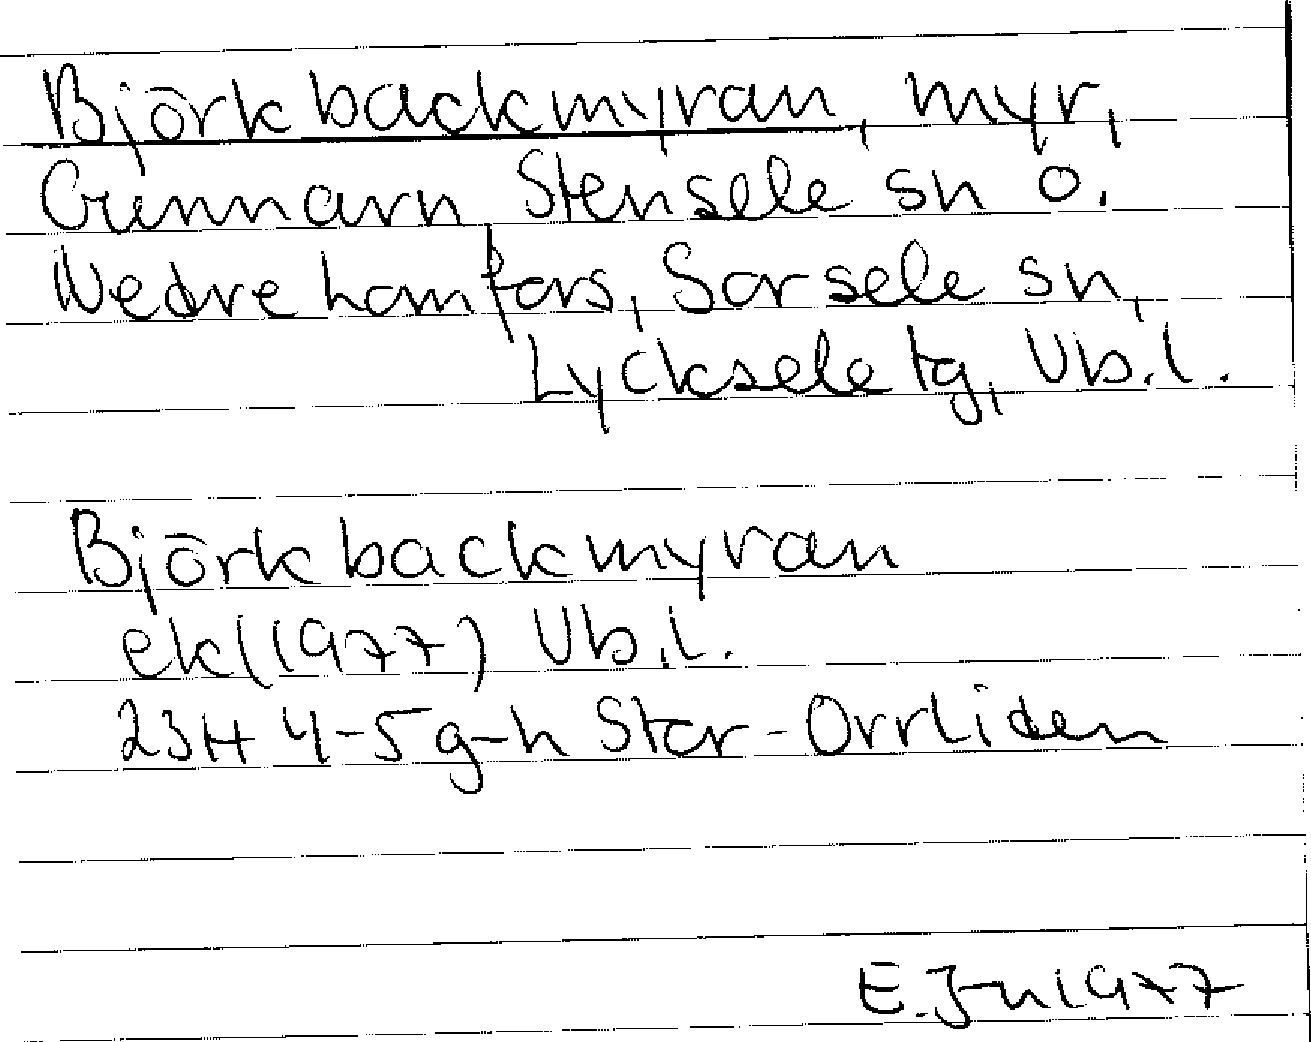 Björkbackmyran, myr,
Gunnarn Stensele sn o.
Nedre hamfors, Sorsele sn,
Lycksele tg, Vb.l.
Björkbackmyran
ek (1977) Vb.l.
23H 4-5 g-h Stor-Orrliden
E.J-n 1977